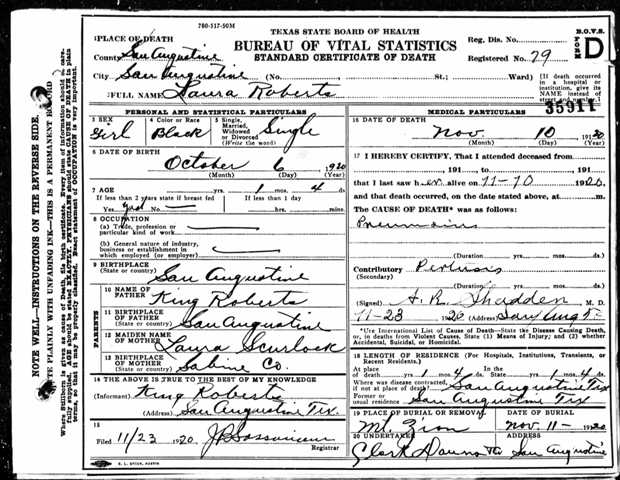 780-517-50M
TEXAS STATE BOARD OF HEALTH
BUREAU OF VITAL STATISTICS
STANDARD CERTIFICATE OF DEATH
B.O.V.S.
FORM D
Reg. Dis. No.
Registered No. 79
1 PLACE OF DEATH
County San Augustine
City San Augustine (No. St.; Ward)
[If death occurred in a hospital or institution, give its NAME instead of street and number.]
2 FULL NAME Laura Roberts
35911
PERSONAL AND STATISTICAL PARTICULARS
3 SEX Girl
4 Color or Race Black
5 Single, Married, Widowed or Divorced (Write the word) Single
6 DATE OF BIRTH
October 6, 1920
(Month) (Day) (Year)
7 AGE yrs. 1 mos. 4 ds.
If less than 2 years state if breast fed
If less than 1 day
Yes No hrs. mins.
8 OCCUPATION
(a) Trade, profession or particular kind of work
(b) General nature of industry, business or establishment in which employed (or employer)
9 BIRTHPLACE
(State or country) San Augustine
PARENTS
10 NAME OF FATHER King Roberts
11 BIRTHPLACE OF FATHER
(State or country) San Augustine
12 MAIDEN NAME OF MOTHER Laura Scurlock
13 BIRTHPLACE OF MOTHER
(State or country) Sabine Co.
14 THE ABOVE IS TRUE TO THE BEST OF MY KNOWLEDGE
(Informant) King Roberts
(Address) San Augustine Tex.
15
Filed 11/23 1920,
Registrar
MEDICAL PARTICULARS
16 DATE OF DEATH
Nov. 10 1920
(Month) (Day) (Year)
17 I HEREBY CERTIFY, That I attended deceased from
, 191 , to , 191
that I last saw her alive on 11-10 1920,
and that death occurred, on the date stated above, at m.
The CAUSE OF DEATH* was as follows:
(Duration) yrs. mos. ds.
Contributory Pertussis
(Secondary)
(Duration) yrs. mos. ds.
(Signed) M. D.
11-23 1920 (Address) San Aug Tx
*Use International List of Cause of Death—State the Disease Causing Death, or, in deaths from Violent Causes, State (1) Means of Injury; and (2) whether Accidental, Suicidal, or Homicidal.
18 LENGTH OF RESIDENCE (For Hospitals, Institutions, Transients, or Recent Residents.)
At place of death yrs. 1 mos. 4 ds. In the State yrs. 1 mos. 4 ds.
Where was disease contracted, if not at place of death? San Augustine Tex
Former or usual residence San Augustine Tex
19 PLACE OF BURIAL OR REMOVAL
Mt. Zion
DATE OF BURIAL
Nov. 11- 1920
20 UNDERTAKER
Clark
ADDRESS
San Augustine
NOTE WELL—INSTRUCTIONS ON THE REVERSE SIDE.
WRITE PLAINLY WITH UNFADING INK—THIS IS A PERMANENT RECORD
E. L. STECK, AUSTIN